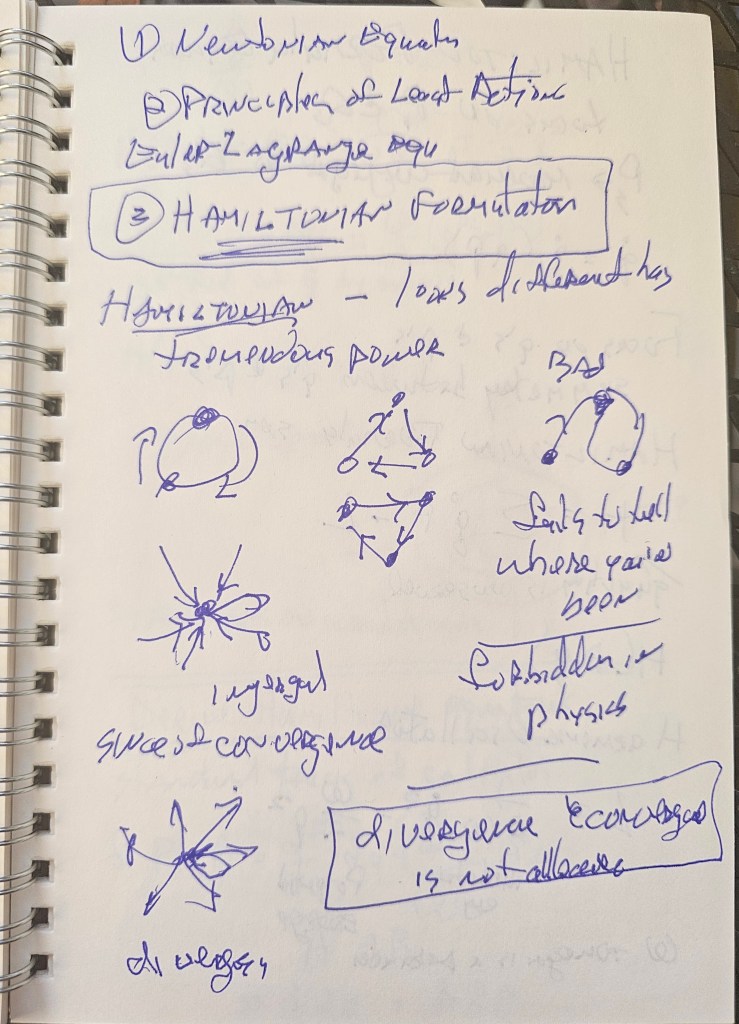 ① Newtonian Equatns
② Principles of Least Actions
Euler-Lagrange Equ
③ Hamiltonian Formulaton
Hamiltonian - looks different has
tremendous power
BAD
fails to tell
where you've
been
forbidden in
physics
convergence
divergence & convergence
is not allowed